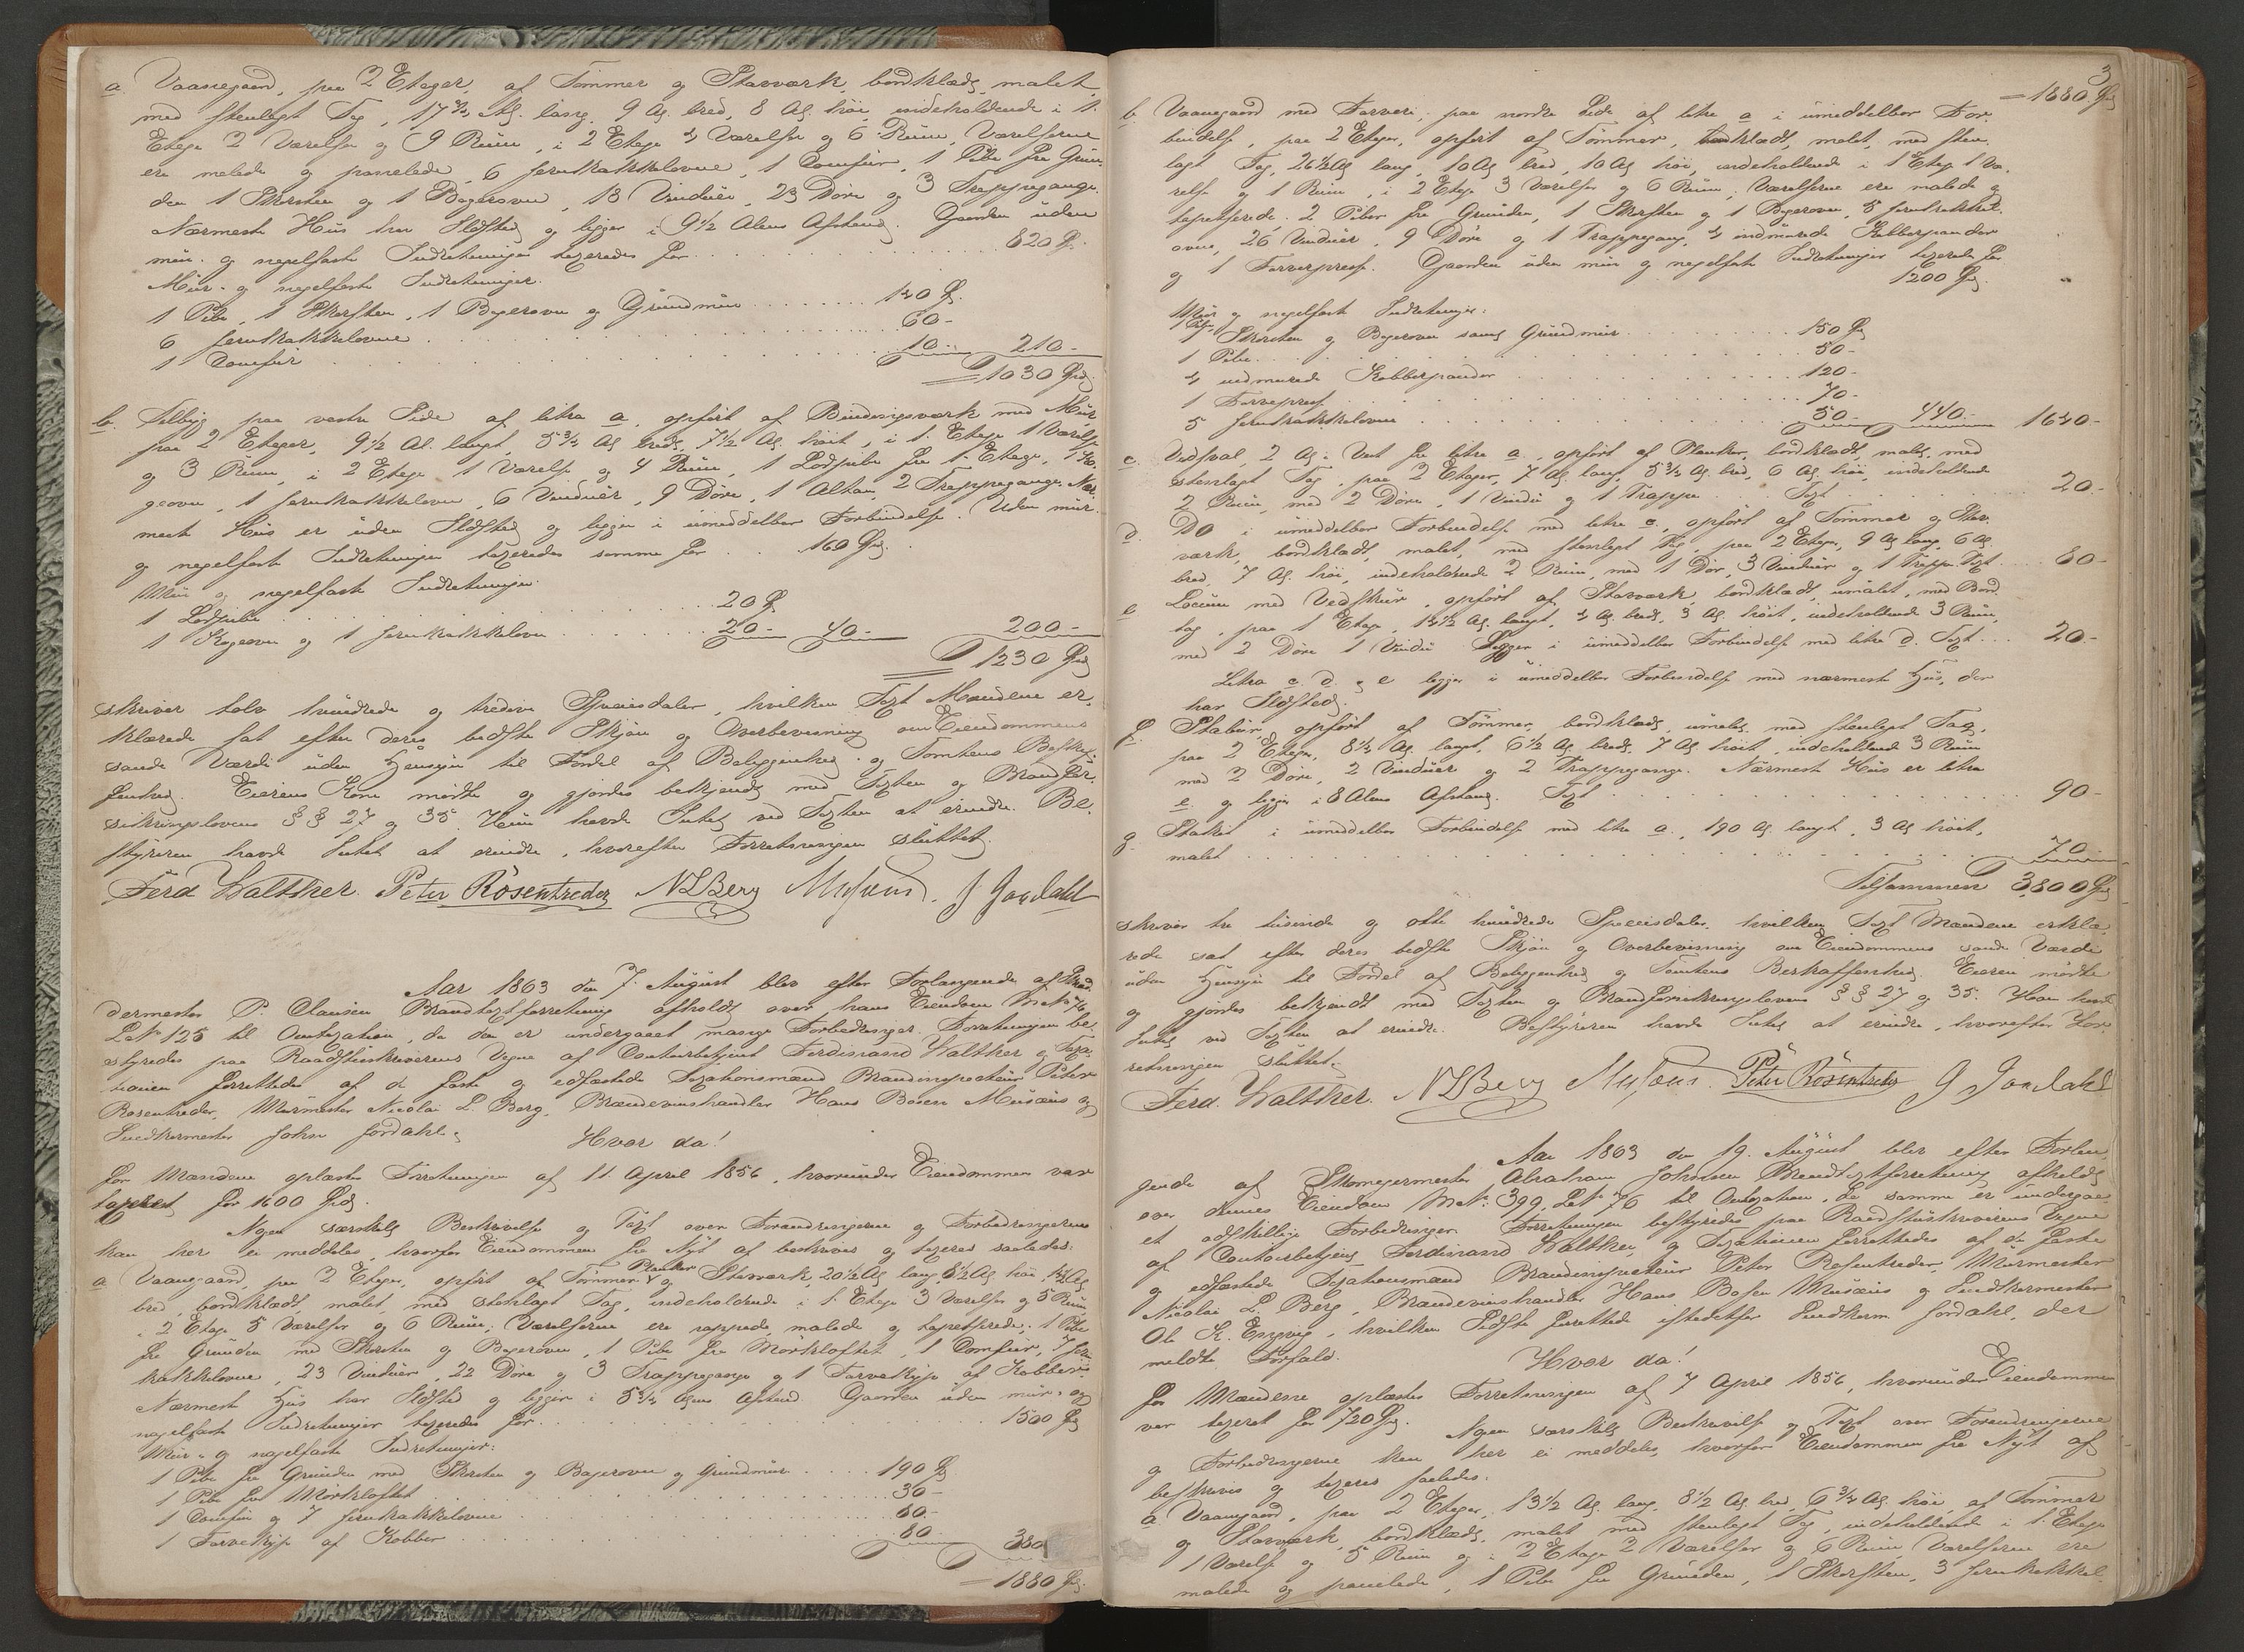 a. Vaanegaard, paa 2 Etager, af Tømmer og Stavværk, bordklædt, malet
med stenlagt Tag, 17 3/4 Al. lang, 9 Al. bred, 8 Al. høi, indeholdende i 1.
Etage 2 Værelser og 9 Rüm, i 2 Etage 4 Værelser og 6 Rüm, Værelserne
ere malede og panelede, 6 Jernkakkelovne, 1 Comfür, 1 Pibe fra Grün-
den 1 Skorsten og 1 Bagerovn, 18 Vindüer, 23 Døre og 3 Trappegange.
Nærmeste Hüs har Ildsted og ligger i 9 1/2 Alens Afstand. Gaarden üden
mür- og nagelfaste Indretninger taxeredes for 820 Spd.
Mür- og nagelfaste Indretninger.
1 Pibe, 1 Skorsten, 1 Bagerovn og Gründmür 140 Spd.
6 Jernkakkelovne 60 -
1 Comfür 10 - 210 -
= 1030 Spd.
b. Tilbyg paa vestre Side af litra a, opført af Bindingsværk med Mür
paa 2 Etager, 9 1/2 Al. langt, 5 3/4 Al. bredt, 7 1/2 Al. høit, i 1. Etage 1 Værelse
og 3 Rüm, i 2 Etage 1 Værelse og 4 Rüm, 1 Lodpibe fra 1. Etage, 1 Ko-
geovn, 1 Jernkakkelovn, 6 Vindüer, 9 Døre, 1 Altan, 2 Trappegange. Nær-
meste Hüs er üden Ildsted og ligger i ümiddelbar Forbindelse. Uden mür-
og nagelfaste Indretninger taxeredes samme for 160 Spd.
Mür og nagelfaste Indretninger.
1 Lodpibe 20 Spd.
1 Kogeovn og 1 Jernkakkelovn 20 - 40 - 200 -
= 1230 Spd
skriver tolv hündrede og tredive Speciesdaler, hvilken Taxt Mændene er-
klærede sat efter deres bedste Skjøn og Overbevisning om Eiendommens
sande Værdi üden Hensyn til Fordel af Beliggenhed og Tomtens Beskaf-
fenhed. Eierens Kone mødte og gjordes bekjendt med Taxten og Brandfor-
sikringslovens §§ 27 og 35. Hün havde Intet ved Taxten at erindre. Be-
styreren havde Intet at erindre, hvorefter Forretningen slüttet.
Ferd Walther. Peter Rosentreder NLBerg Musæus. J Jordahl
Aar 1863 den 7. Aügüst blev efter Forlangende af Skræd-
dermester P. Clausen Brandtaxtforretning afholdt over hans Eiendom
L. No 125 til Omtaxation, da den er undergaaet mange Forbedringer. Forretningen be-
styredes paa Raadstüeskriverens Vegne af Contoirbetjent Ferdinand Walther og Taxa-
tionen forrettedes af de faste og edfæstede Taxationsmænd Brandinspecteür Peter
Rosentreder, Mürmester Nicolai L. Berg, Brændevinshandler Hans Bosen Musæus og
Snedkermester John Jordahl.
Hvor da!
for Mændene oplæstes Forretningen af 11. April 1856, hvoründer Eiendommen var
taxeret for 1600 Spd.
Nogen særskilt Beskrivelse og Taxt over Forandringerne og Forbedringerne
kan her ei meddeles, hvorfor Eiendommen fra Nyt af beskrives og taxeres saaledes:
a Vaanegaard, paa 2 Etager, opført af Tømmer, Planker og Stavværk, 20 1/2 Al. lang 8 1/2 Al. høi,
bred, bordklædt, malet, med stenlagt Tag, indeholdende i 1. Etage 3 Værelser og 5 Rüm,
i 2 Etage 5 Værelser og 6 Rüm; Værelserne ere rappede, malede og tapetserede; 1 Pibe
fra Gründen med Skorsten og Bagerovn, 1 Pibe fra Mørkloftet, 1 Comfür, 7 Jern-
kakkelovne, 23 Vindüer, 22 Døre og 3 Trappegange og 1 Farvekype af Kobber.
Nærmeste Hüs har Ildsted og ligger i 5 3/4 Alens Afstand. Gaarden üden mür- og
nagelfaste Indretninger taxeredes for 1500 Spd
Mür- og nagelfaste Indretninger:
1 Pibe fra Gründen med Skorsten og Bagerovn og Gründmür 190 Spd
1 Pibe fra Mørkloftet 30 -
1 Comfür og 7 Jernkakkelovne 80 -
1 Farvekype af Kobber 80 - 380
= 1880 Spd.
3
= 1880 Spd
b. Vaanegaard med Farveri, paa nordre Side af litra a i ümiddelbar For-
bindelse, paa 2 Etager, opført af Tømmer, bordklædt, malet, med sten-
lagt Tag, 26 1/2 Al lang, 10 Al bred, 10 Al høi, indeholdende i 1 Etage 1 Væ-
relse og 1 Rüm, i 2 Etage 3 Værelser og 6 Rüm, Værelserne ere malede og
tapetserede. 2 Piber fra Gründen, 1 Skorsten og 1 Bagerovn, 5 Jernkakkel-
ovne, 26 Vindüer, 9 Døre og 1 Trappegang, 4 indmürede Kobberpander
og 1 Farverpresse. Gaarden üden mür og nagelfaste Indretninger taxeredes for
1200 Spd.
Mür og nagelfaste Indretninger:
1 Pibe Skorsten og Bagerovn samt Gründmür 150 Spd
1 Pibe 50 -
4 indmurede Kobberpander 120 -
1 Farvepresse 70 -
5 Jernkakkelovne 50 - 440 - 1640 -
c. Vedsval, 2 Al. Vest fra litra a, opført af Planker, bordklædt, malet, med
stenlagt Tag, paa 2 Etager, 7 Al. langt, 5 3/4 Al. bred, 6 Al. høi, indeholdende
2 Rüm, med 2 Døre, 1 Vindü og 1 Trappe. Taxt 20 -
d. Do i ümiddelbar Forbindelse med litra c, opført af Tømmer og Stav-
værk, bordklædt, malet, med stenlagt Tag, paa 2 Etager, 9 Al lang, 6 Al.
bred, 7 Al. høi, indeholdende 2 Rüm, med 1 Dør, 3 Vindüer og 1 Trappe. Taxt 80 -
e Locüm med Vedskür, opført af Stavværk bordklædt, ümalet, med Bord-
tag, paa 1 Etage, 14 1/2 Al. langt, 4 Al. bredt, 3 Al. høit, indeholdende 3 Rüm,
med 2 Døre 1 Vindü. Ligger i ümiddelbar Forbindelse med litra d. Taxt 20 -
Litra c. d. og e ligger i ümiddelbar Forbindelse med nærmeste Hüs, der
har Ildsted.
f. Stabür opført af Tømmer, bordklædt, ümalet, med stenlagt Tag,
paa 2 Etager, 8 1/4 Al. langt, 6 1/2 Al. bredt, 7 Al høit, indeholdende 3 Rüm
med 2 Døre, 2 Vindüer og 2 Trappegange. Nærmeste Hüs er litra
e. og ligger i 8 Alens Afstand. Taxt 90 -
g. Stakit i ümiddelbar Forbindelse med litra a., 190 Al langt, 3 Al høit,
malet 70 -
Tilsammen 3800 Spd
skriver tre tüsinde og otte hündrede Speciesdaler, hvilken Taxt Mændene erklæ-
rede sat efter deres bedste Skjøn og Overbevisning om Eiendommens sande Værdi
üden Hensyn til Fordel af Beliggenhed og Tomtens Beskaffenhed. Eieren mødte
og gjordes bekjendt med Taxten og Brandforsikringslovens §§ 27 og 35. Han havde
Intet ved Taxten at erindre. Bestyreren havde Intet at erindre, hvorefter For-
retningen slüttet.
Ferd. Walther. NLBerg Musæus. Peter Rosentreder J Jordahl
Aar 1863 den 19. Aügüst blev efter Forlan-
gende af Skomagermester Abraham Johnsen Brandtaxtforretning afholdt
over dennes Eiendom Mat. No 399, Let. No 76 til Omtaxation, da samme er ündergaa-
et adskillige Forbedringer. Forretningen bestyredes paa Raadstüskriverens Vegne
af Contoirbetjent Ferdinand Walther, og Taxationen forrettedes af de faste
og edfæstede Taxationsmænd Brandinspecteür Peter Rosentreder, Mürmester
Nicolai L. Berg, Brændevinshandler Hans Bosen Musæus og Snedkermester
Ole K. Engvig, hvilken Sidste forrettede istedetfor Snedkerm. Jordahl, der
meldte Forfald.
Hvor da!
for Mændene oplæstes Forretningen af 7 April 1856, hvoründer Eiendommen
var taxeret for 720 Spd. Nogen særskilt Beskrivelse og Taxt over Forandringerne
og Forbedringerne kan her ei meddeles, hvorfor Eiendommen fra Nyt af
beskrives og taxeres saaledes:
a. Vaanegaard, paa 2 Etager, 13 1/2 Al. lang, 8 1/2 Al. bred, 6 3/4 Al. høi, af Tømmer
og Stavværk, bordklædt, malet med stenlagt Tag, indeholdende i 1. Etage
1 Værelse og 5 Rüm og i 2 Etage 2 Værelser og 6 Rüm. Værelserne ere
malede og panelede, 1 Pibe fra Gründen, 1 Skorsten, 3 Jernkakkel-